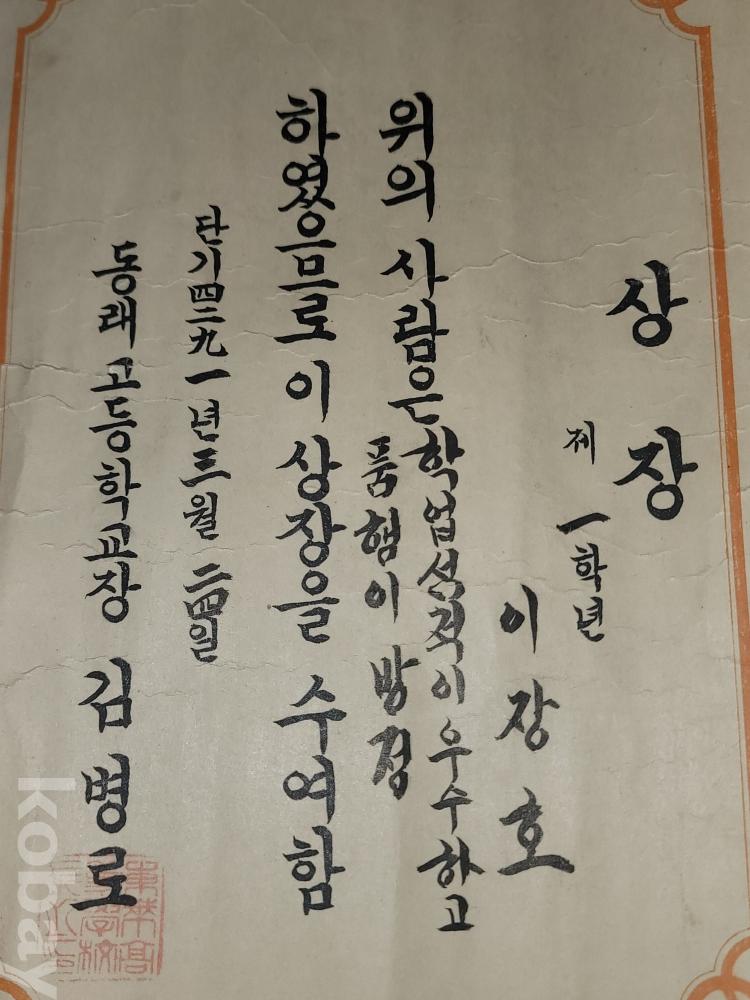 상장
제 一학년
이장호
위의 사람은 학업성적이 우수하고
품행이 방정
하였음므로 이 상장을 수여함
단기四二九一년 三월 二四일
동래고등학교장 김병로
kobay